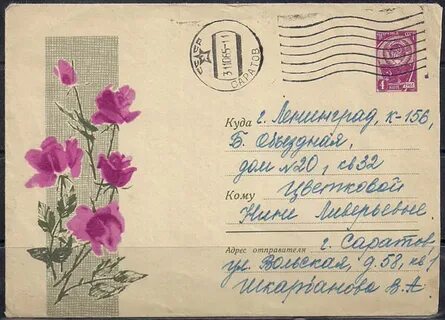 СССР
31 10 65-11
САРАТОВ
Куда г. Ленинград, К-156,
Б. Объездная,
дом № 20, кв 32
Кому Цветковой
Нине Ливерьевне
Адрес отправителя г. Саратов
ул. Вольская, д. 58, кв 1
Шкарбанова В.А